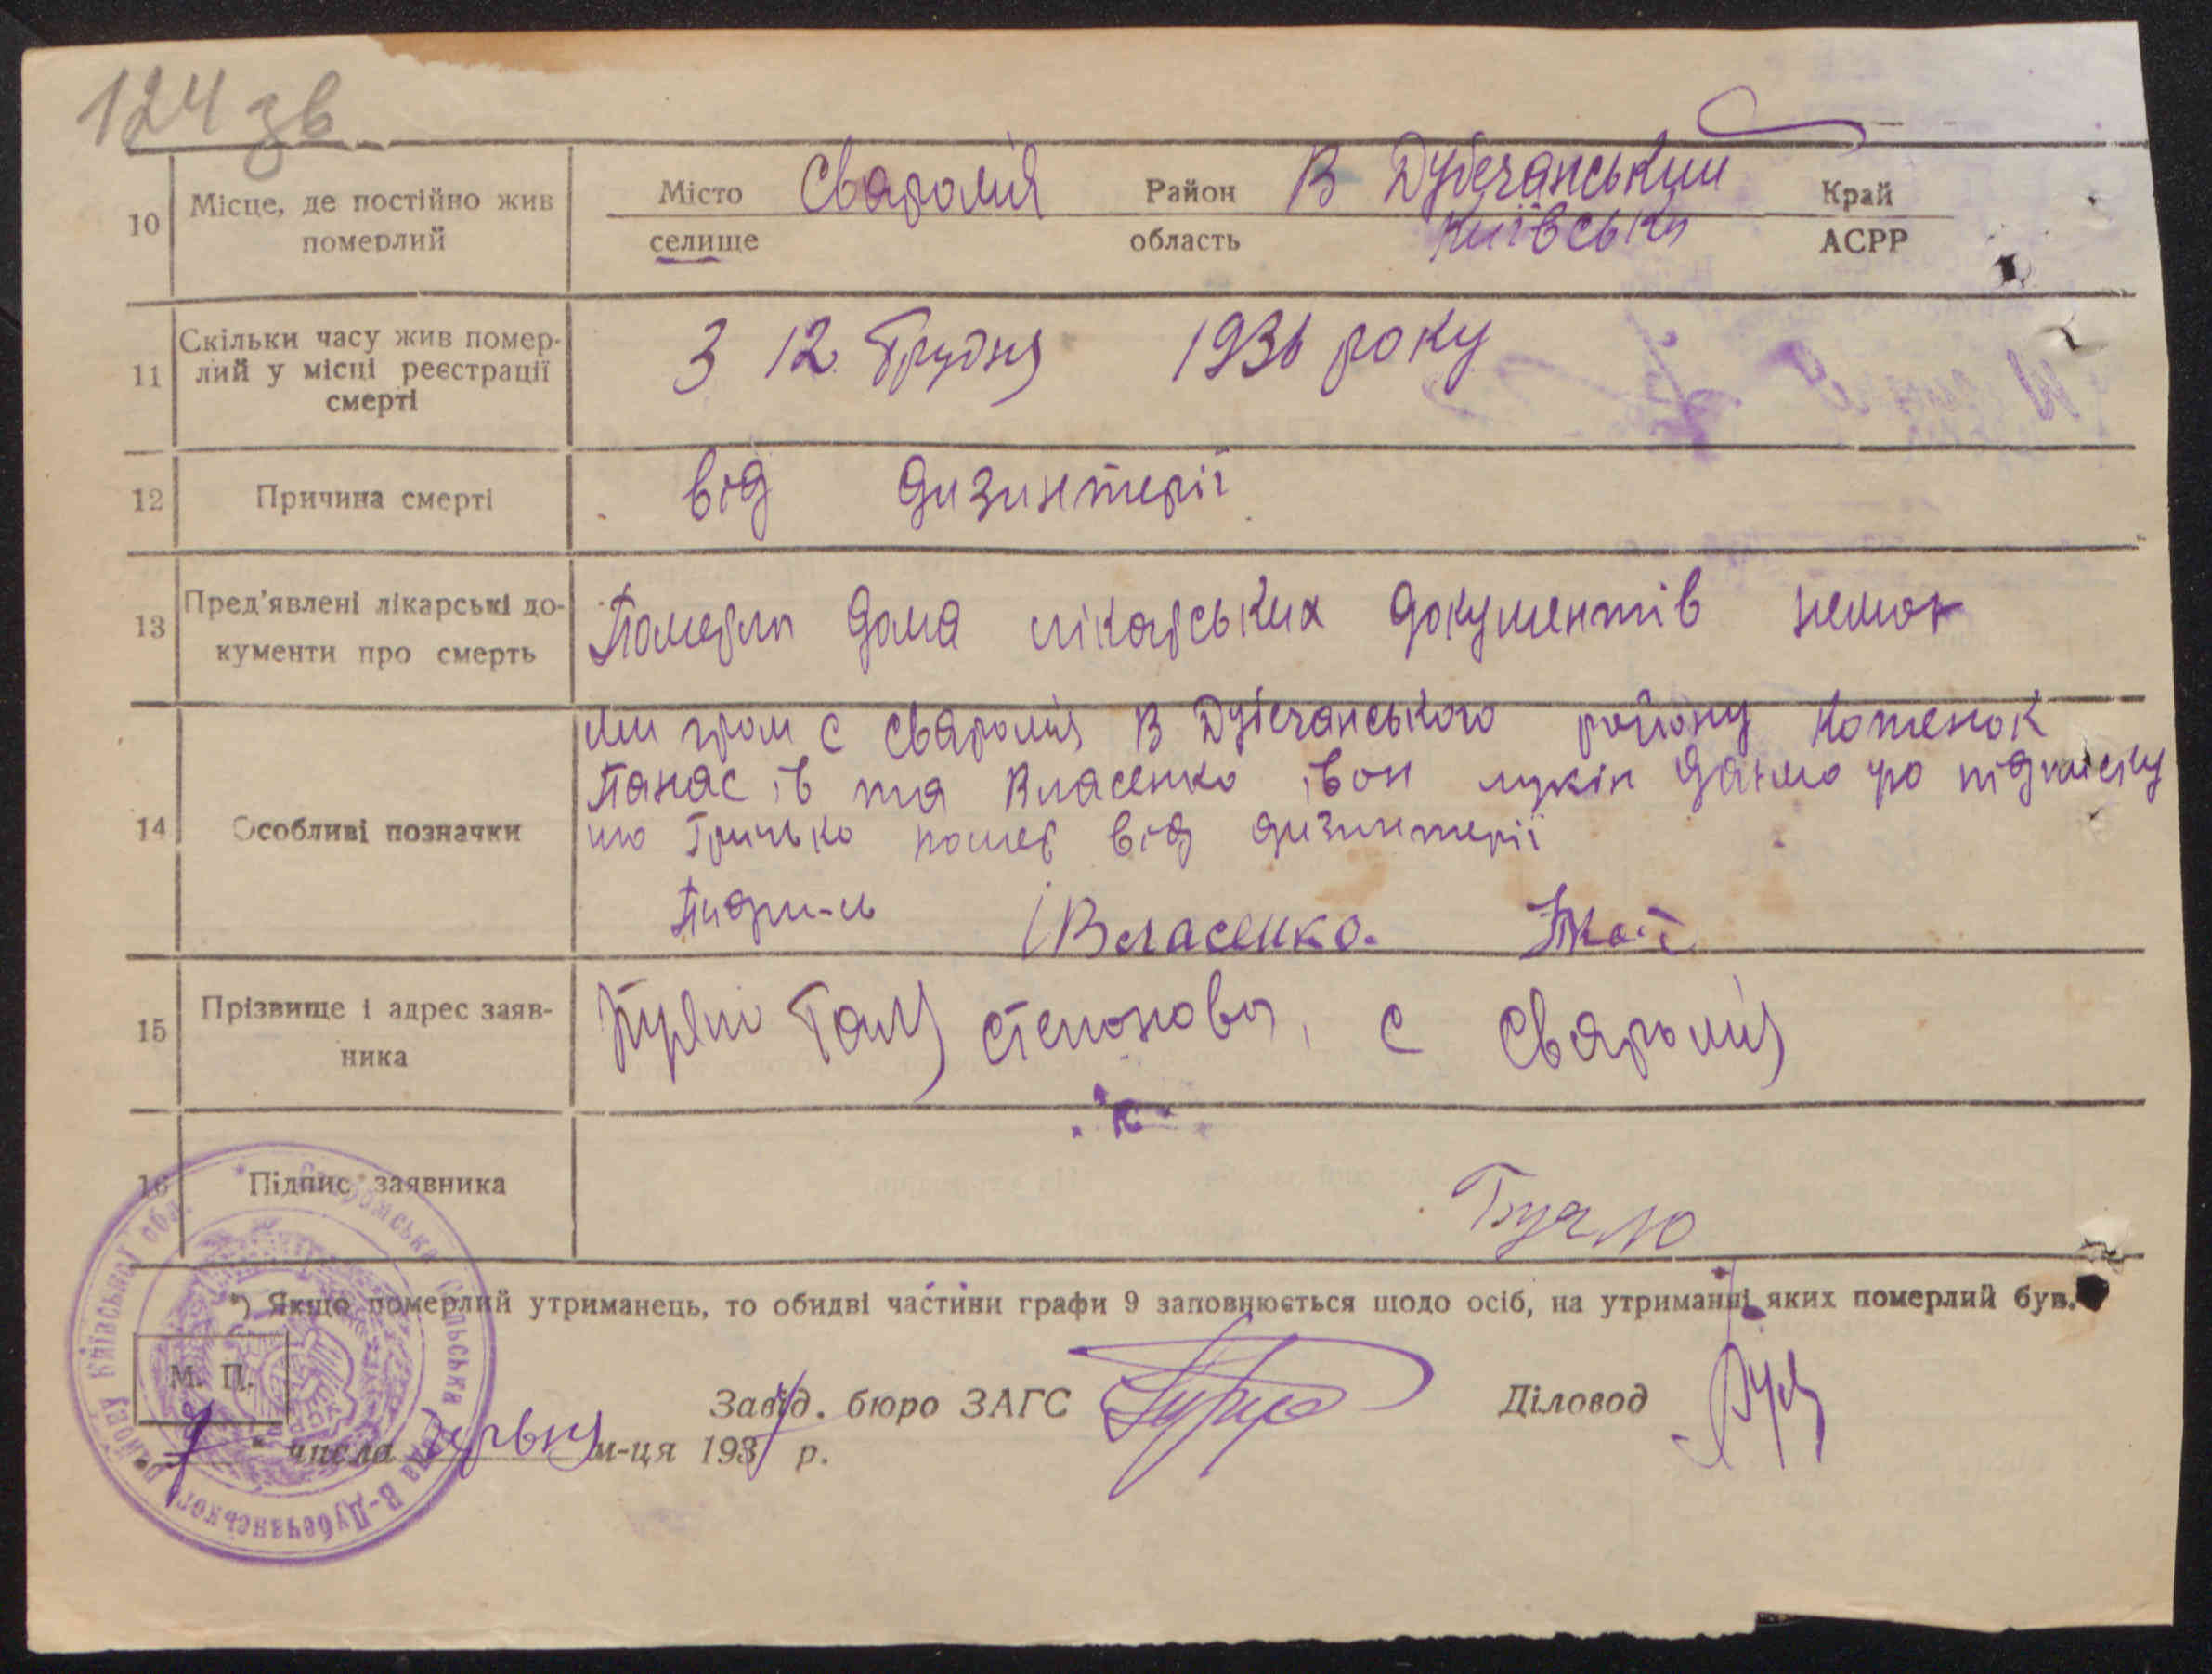 124 зв
10 Місце, де постійно жив померлий
Місто Сваромія Район В Дубечанський Край
селище область Київська АСРР
11 Скільки часу жив помер-
лий у місці реєстрації
смерті
З 12 Грудня 1936 року
12 Причина смерті
від дизинтерії
13 Пред'явлені лікарські до-
кументи про смерть
Померла дома лікарських документів нема
14 Особливі позначки
Ми гром с Сваромія В Дубечанського району Котенок
Панас ів та Власенко іван лукін даємо цю підписку
що Гритько помер від дизинтерії
Власенко.
15 Прізвище і адрес заяв-
ника
Степонова, с Сваромія
16 Підпис заявника
*) Якщо померлий утриманець, то обидві частини графи 9 заповнюється щодо осіб, на утриманні яких померлий був.
М. П.
Завід. бюро ЗАГС Діловод
числа Червня м-ця 1937 р.
сільська рада В-Дубечанського району Київської обл.